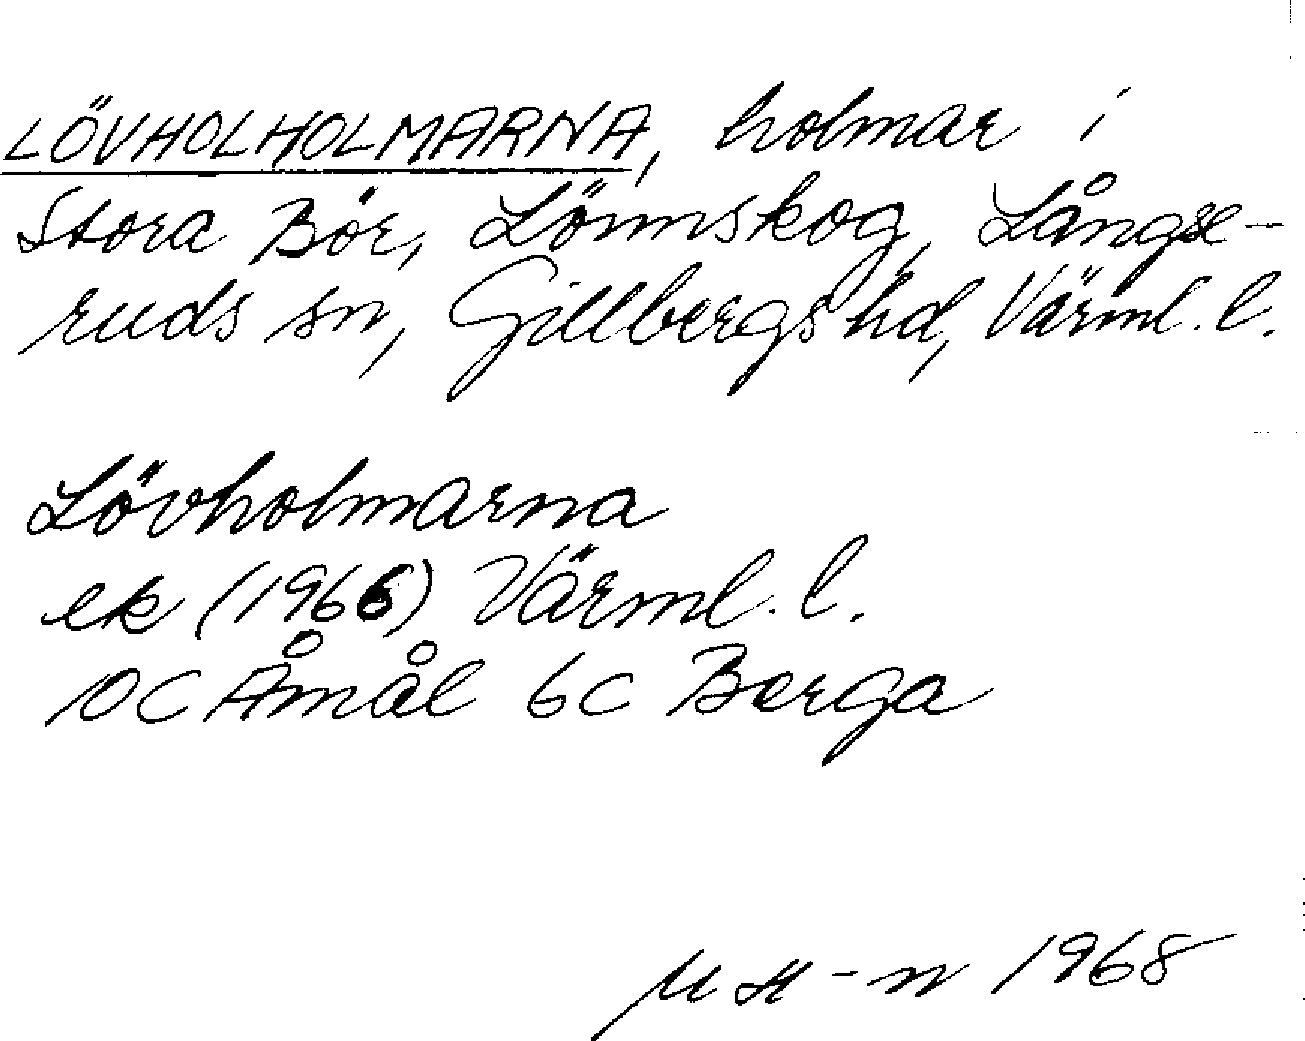 LÖVHOLHOLMARNA, holmar i
Stora Bör, Lönnskog, Långse-
ruds sn, Gillbergs hd, Värml. l.
Lövholmarna
ek (1966) Värml. l.
10C Åmål 6c Berga
MH-n 1968